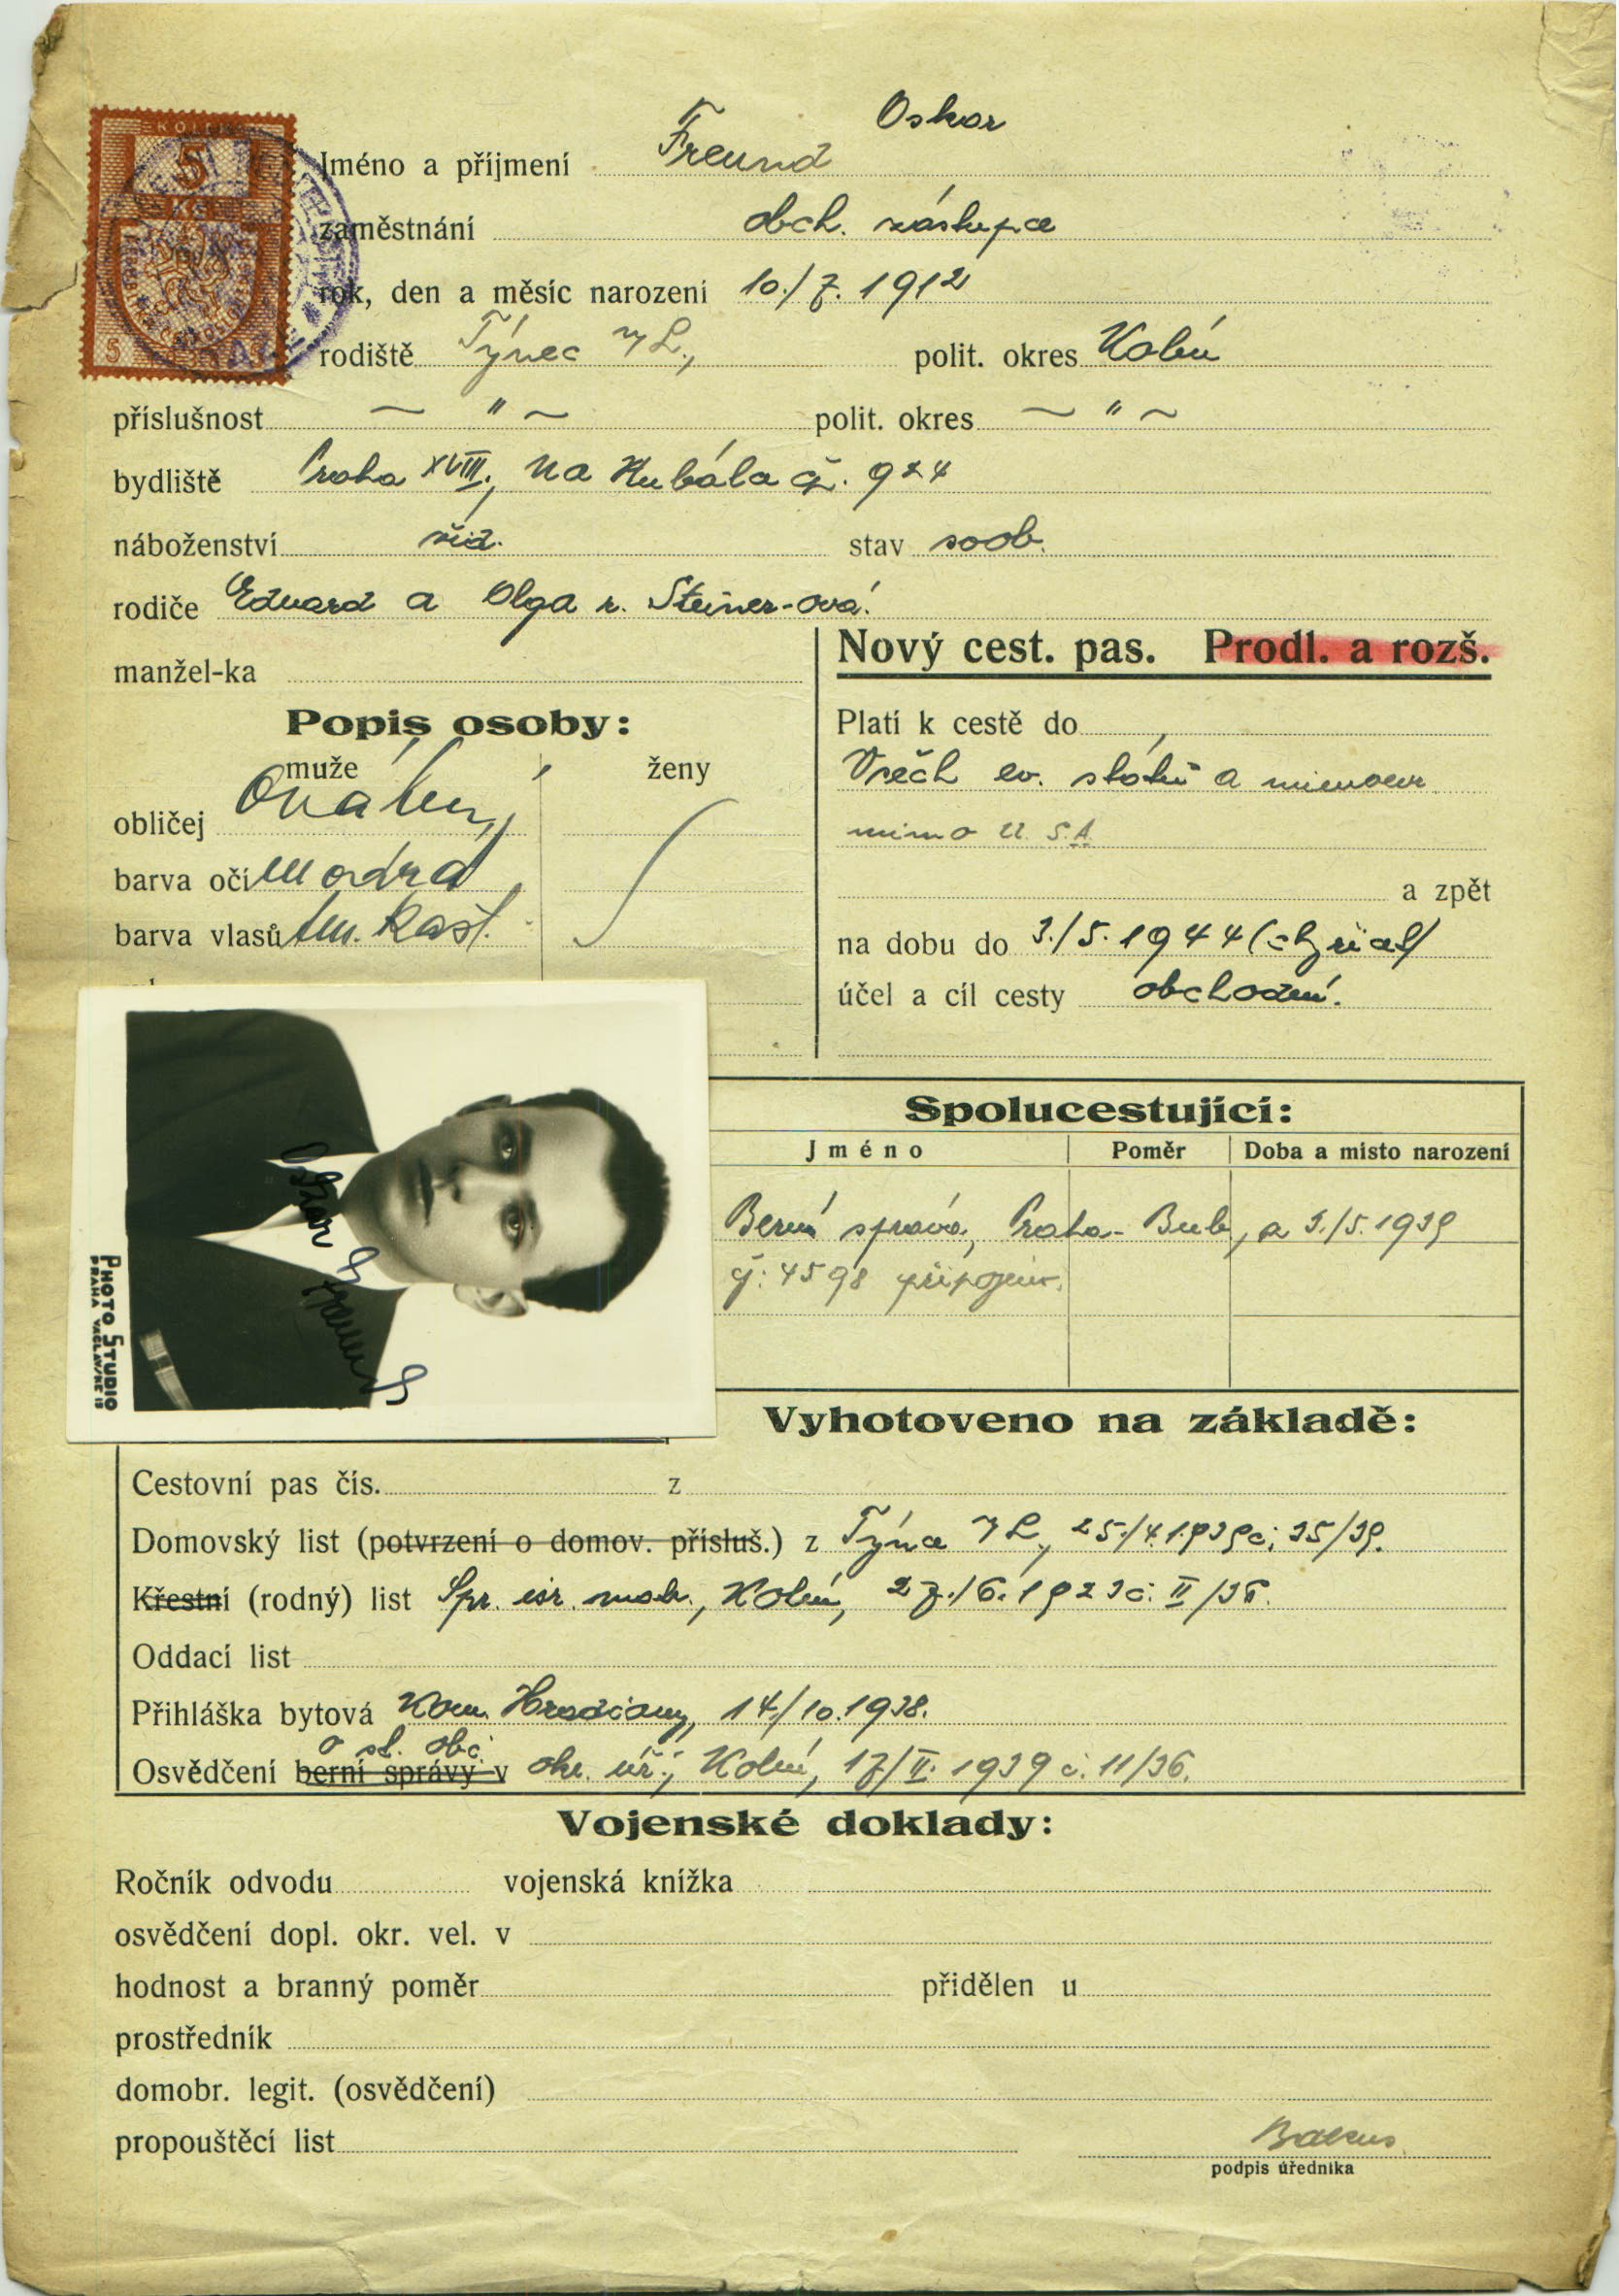 Oskar
Jméno a příjmení Freund
zaměstnání obch. zástupce
rok, den a měsíc narození 10./7. 1912
rodiště Týnec n/L., polit. okres Kolín
příslušnost — " — polit. okres — " —
bydliště Praha XVIII., Na Hubála čj. 924
náboženství žid. stav svob.
rodiče Eduard a Olga r. Steiner-ová.
manžel-ka
Nový cest. pas. Prodl. a rozš.
Popis osoby:
muže ženy
obličej Oválný
barva očí Modrá
barva vlasů tm. kašt.
Platí k cestě do
Všech ev. států a mimoevr.
mimo U.S.A.
a zpět
na dobu do 3./5. 1944
účel a cíl cesty obchodní.
KOLEK
5
KČ
5
Oskar Freund
PHOTO STUDIO
PRAHA VÁCLAV. NÁM.
Spolucestující:
Jméno Poměr Doba a místo narození
Berní správa, Praha-Bub, z 3./5. 1939
čj: 4598 připojeno.
Vyhotoveno na základě:
Cestovní pas čís. z
Domovský list (potvrzení o domov. přísluš.) z Týnce n/L., 25./4. 1939 č: 35/39.
Křestní (rodný) list Spr. isr. matr., Kolín, 27./6. 1923 č. II/36.
Oddací list
Přihláška bytová Kom. Hradčany, 14./10. 1938.
o st. obč.
Osvědčení berní správy v okr. úř., Kolín, 17/II. 1939 č. 11/36.
Vojenské doklady:
Ročník odvodu vojenská knížka
osvědčení dopl. okr. vel. v
hodnost a branný poměr přidělen u
prostředník
domobr. legit. (osvědčení)
propouštěcí list
podpis úředníka